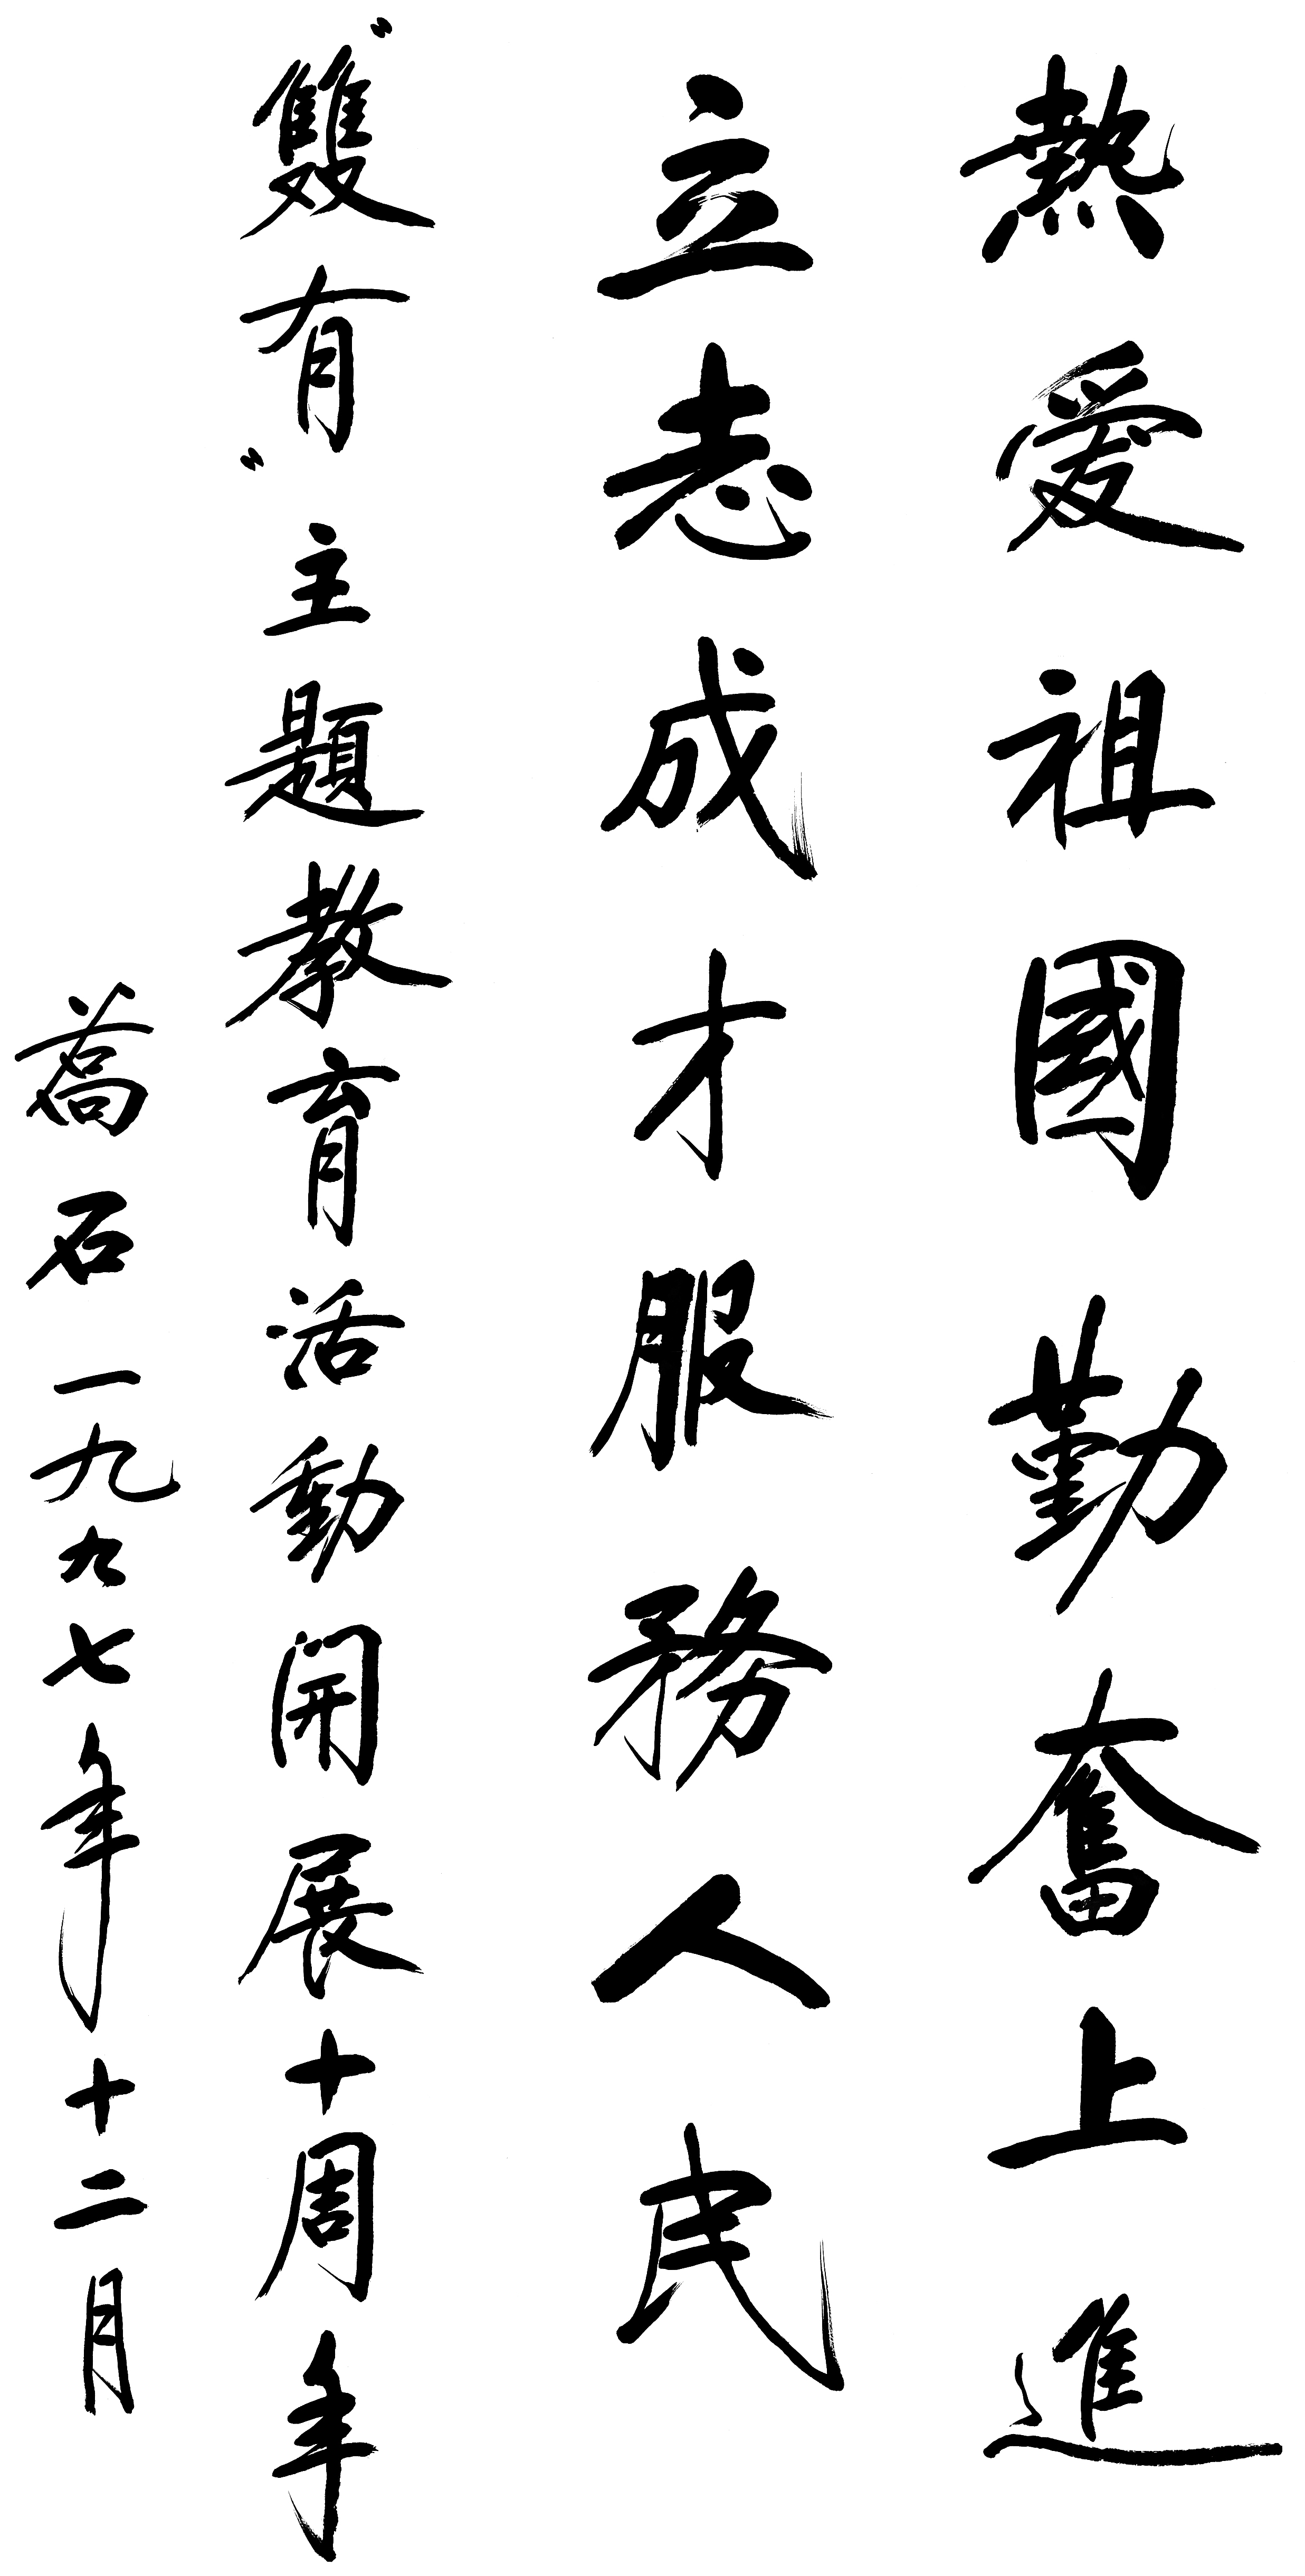 熱愛祖國勤奮上進
立志成才服務人民
"雙有"主題教育活動開展十周年
喬石一九九七年十二月